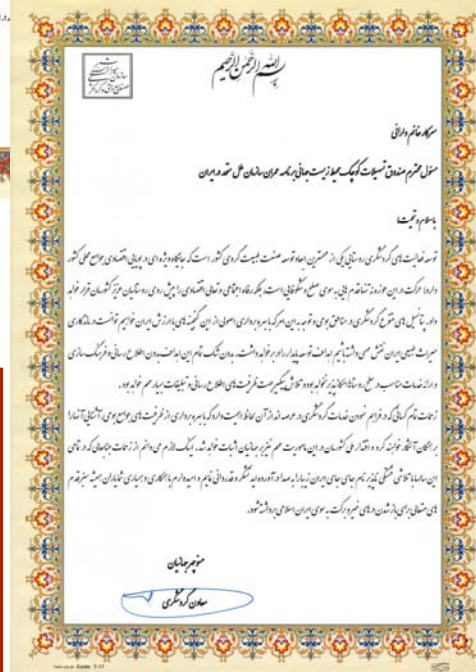 بسم الله الرحمن الرحیم
سرکار خانم دارائی
مسئول محترم صندوق تسهیلات کوچک محیط زیست جهانی برنامه عمران سازمان ملل متحد در ایران
باسلام و تحیت
توسعه فعالیت های گردشگری روستایی یکی از مهمترین ابعاد توسعه صنعت طبیعت گردی کشور است که جایگاه ویژه ای در پویایی اقتصادی جوامع محلی کشور
دارد؛ حرکت در این حوزه نه تنها قدم هایی به سوی صلح و شکوفایی است، بلکه رفاه اجتماعی و تعالی اقتصادی را پیش روی روستاییان عزیز کشورمان قرار خواهد
داد. پتانسیل های متنوع گردشگری در مناطق بومی و توجه به این امر که با بهره برداری اصولی از این گنجینه های با ارزش ایران خواهیم توانست در ماندگاری
میراث طبیعی ایران نقش مهمی داشته باشیم اهداف توسعه پایدار را در بر خواهد داشت. بدون شک تمام این اهداف بدون اطلاع رسانی و فرهنگ سازی
و ارائه خدمات مناسب در سطح روستاها امکانپذیر نخواهد بود و تلاش پیگیر جهت ظرفیت های اطلاع رسانی و تبلیغات بسیار مهم خواهد بود.
زحمات تمام کسانی که در فراهم نمودن خدمات گردشگری در عرصه اند از آن لحاظ اهمیت دارد که با بهره برداری از ظرفیت های جوامع بومی،
بر همگان آشکار خواهند کرد و اقتدار ملی کشورمان در این ماموریت مهم نیز بر جهانیان اثبات خواهد شد. اینک لازم می دانم از زحمات جنابعالی که در تمامی
این سالها با تلاشی خستگی ناپذیر نام جای جای ایران زیبا را به صدا در آورده اید تشکر و قدردانی نمایم و امیدوارم با همکاری و همیاری شما یاران همیشه سبز قدم
های متعالی برای باز شدن درهای خیر و برکت به سوی ایران اسلامی برداشته شود.
منوچهر جهانیان
معاون گردشگری
Code: T-17